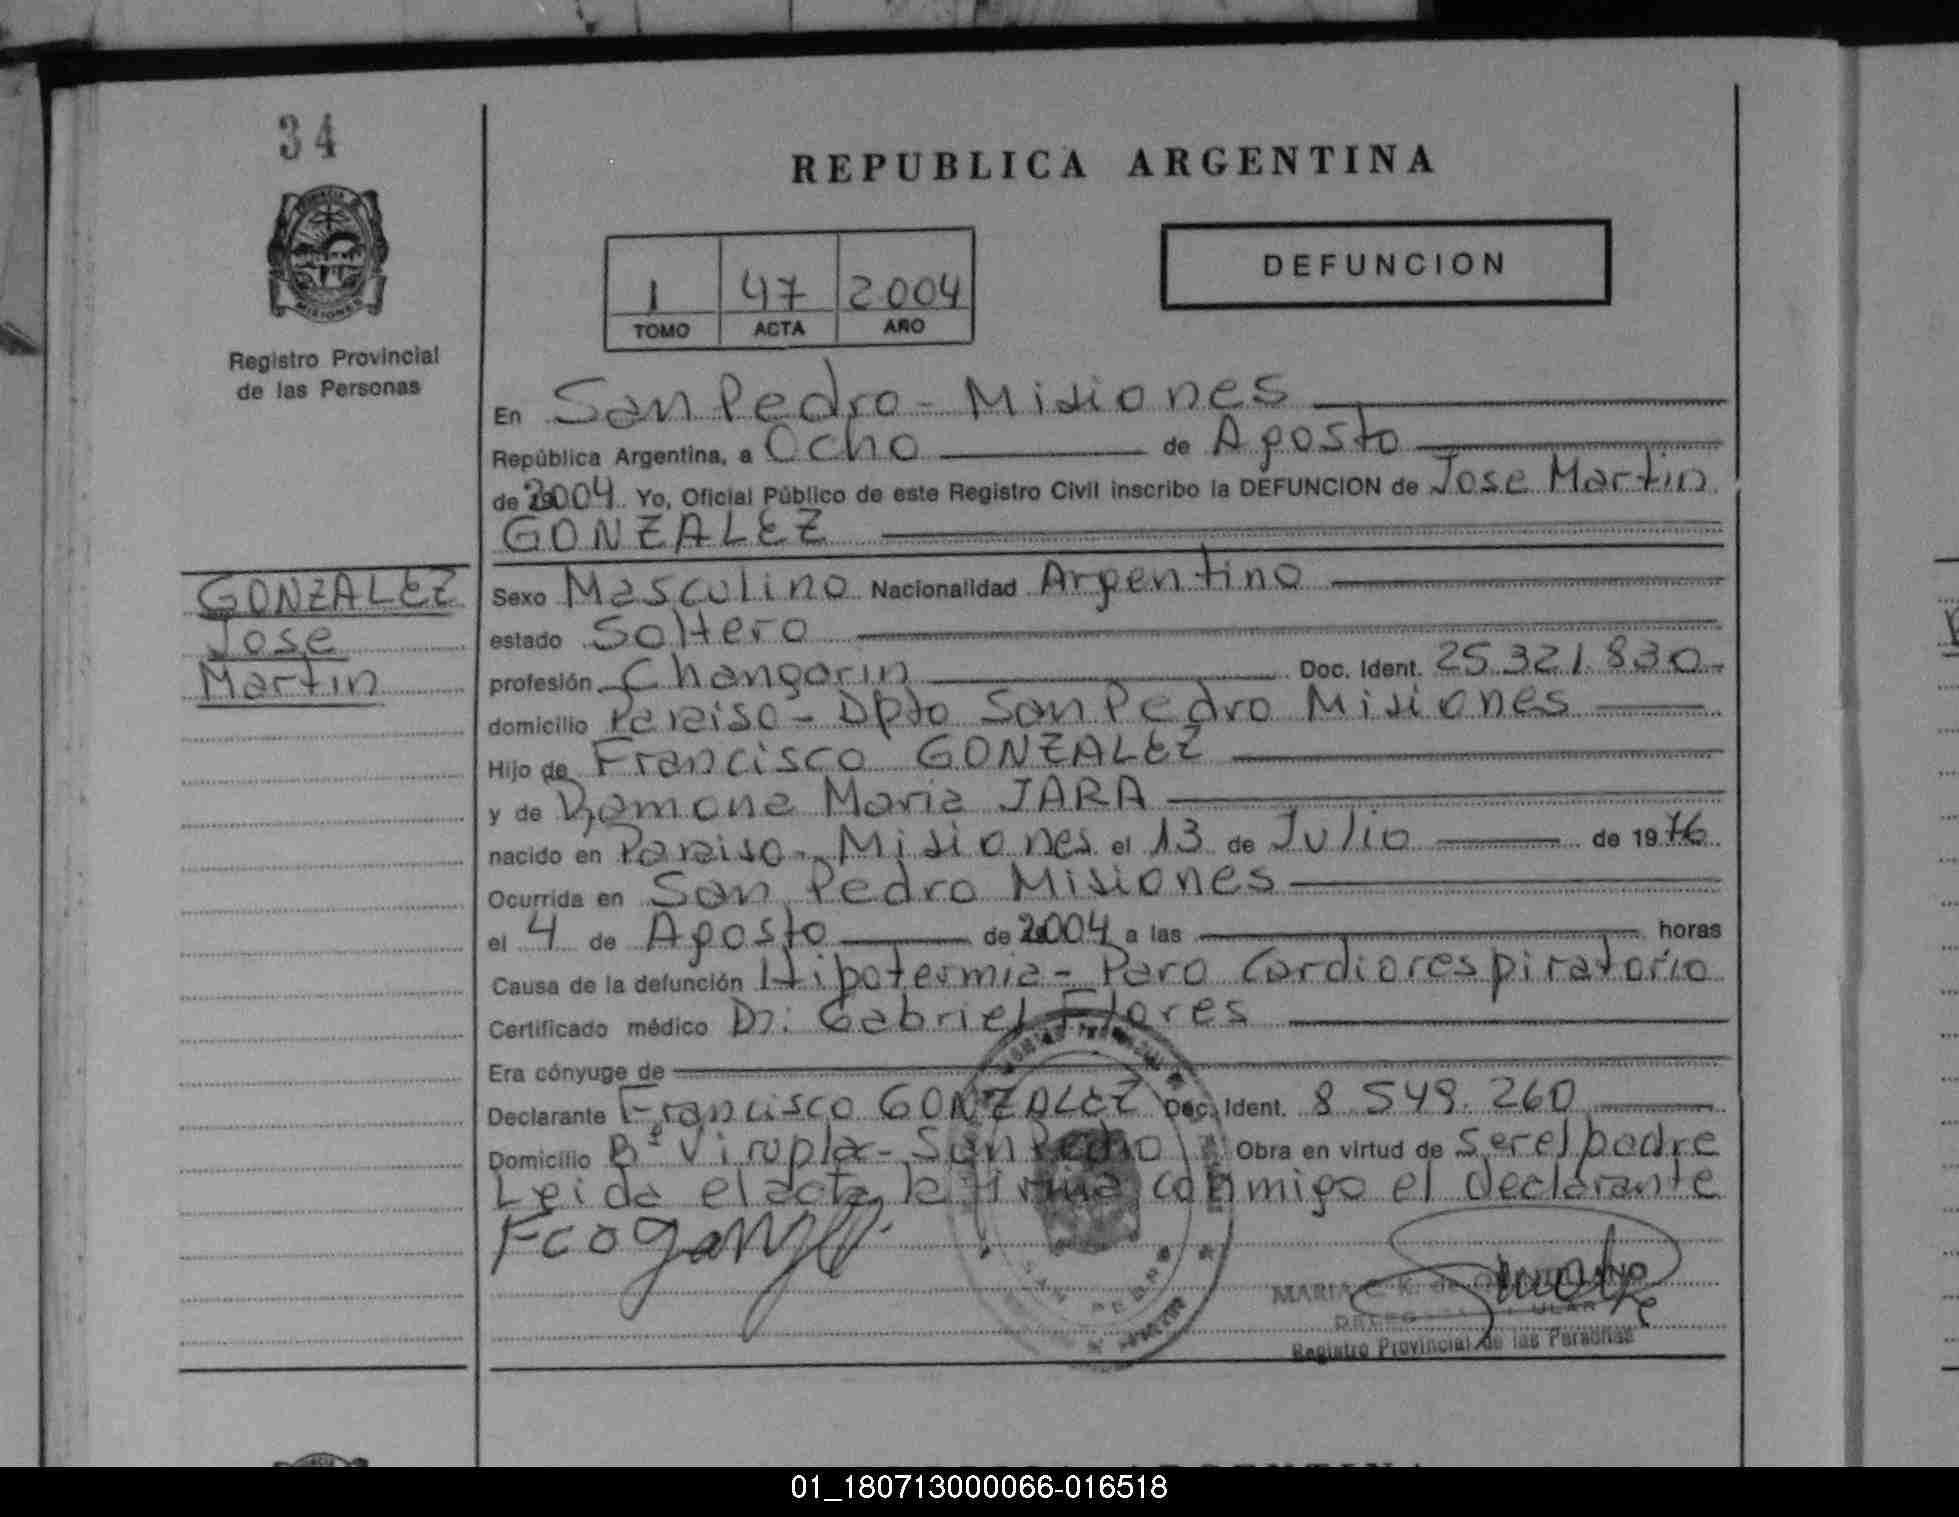 34
Registro Provincial
de las Personas
REPUBLICA ARGENTINA
1 47 2004
TOMO ACTA AÑO
DEFUNCION
En San Pedro - Misiones
República Argentina, a Ocho de Agosto
de 2004 Yo, Oficial Público de este Registro Civil inscribo la DEFUNCION de Jose Martin
GONZALEZ
GONZALEZ
Jose
Martin
Sexo Masculino Nacionalidad Argentino
estado Soltero
profesión Changarin Doc. Ident. 25.321.830
domicilio Paraiso - Dpto San Pedro Misiones
Hijo de Francisco GONZALEZ
y de Ramona Maria JARA
nacido en Paraiso - Misiones el 13 de Julio de 1976
Ocurrida en San Pedro Misiones
el 4 de Agosto de 2004 a las horas
Causa de la defunción Hipotermia - Paro Cardiorespiratorio
Certificado médico Dr: Gabriel Flores
Era cónyuge de
Declarante Francisco GONZALEZ Doc. Ident. 8.549.260
Domicilio Bº San Pedro Obra en virtud de ser el padre
Leida el acta la firma conmigo el declarante
Fco
MARIA C. K. de
Registro Provincial de las Personas
01_180713000066-016518